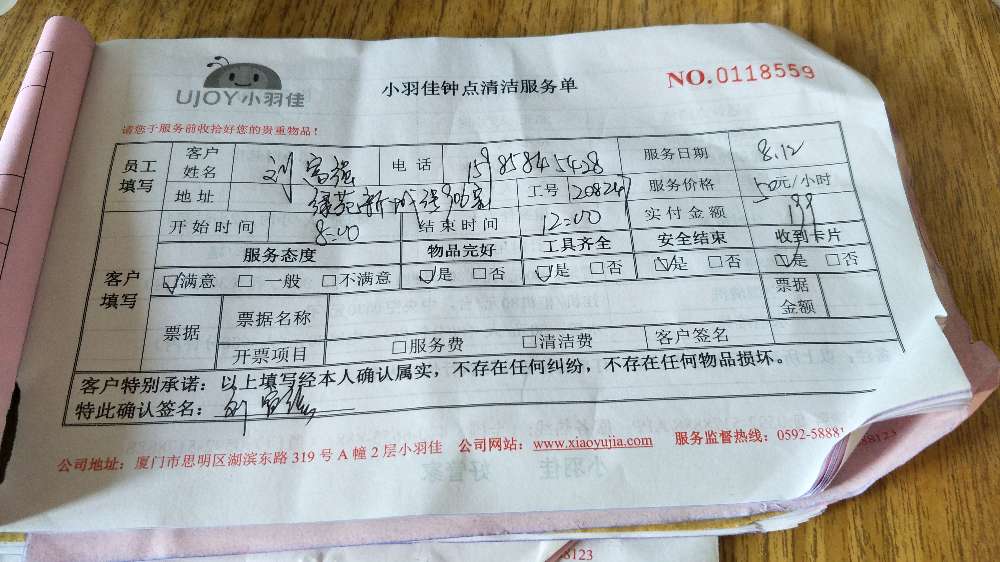 UJOY小羽佳
小羽佳钟点清洁服务单
NO.0118559
请您于服务前收拾好您的贵重物品!
员工填写 客户姓名 刘富强 电话 15985845428 服务日期 8.12
地址 绿苑新城 工号 208247 服务价格 50元/小时
客户填写 开始时间 8:00 结束时间 12:00 实付金额 199
服务态度 物品完好 工具齐全 安全结束 收到卡片
☑满意 □一般 □不满意 ☑是 □否 ☑是 □否 ☑是 □否 ☑是 □否
票据 票据名称 票据金额
开票项目 □服务费 □清洁费 客户签名
客户特别承诺:以上填写经本人确认属实,不存在任何纠纷,不存在任何物品损坏。
特此确认签名:刘富强
公司地址:厦门市思明区湖滨东路319号A幢2层小羽佳 公司网站:www.xiaoyujia.com 服务监督热线:0592-58881
88123
小羽佳 好管家
8123